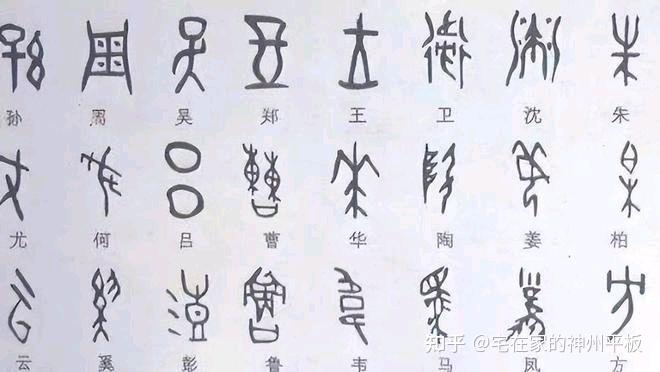 孙 周 吴 郑 王 卫 沈 朱
尤 何 吕 曹 华 陶 姜 柏
云 奚 彭 鲁 韦 马 凤 方
知乎 @宅在家的神州平板